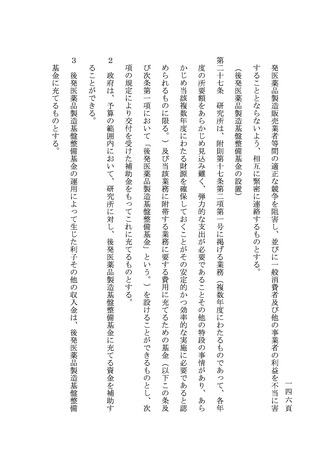 一四六頁
発医薬品製造販売業者等間の適正な競争を阻害し、並びに一般消費者及び他の事業者の利益を不当に害
することとならないよう、相互に緊密に連絡するものとする。
（後発医薬品製造基盤整備基金の設置）
第二十七条　研究所は、附則第十七条第二項第一号に掲げる業務（複数年度にわたるものであって、各年
度の所要額をあらかじめ見込み難く、弾力的な支出が必要であることその他の特段の事情があり、あら
かじめ当該複数年度にわたる財源を確保しておくことがその安定的かつ効率的な実施に必要であると認
められるものに限る。）及び当該業務に附帯する業務に要する費用に充てるための基金（以下この条及
び次条第一項において「後発医薬品製造基盤整備基金」という。）を設けることができるものとし、次
項の規定により交付を受けた補助金をもってこれに充てるものとする。
２　政府は、予算の範囲内において、研究所に対し、後発医薬品製造基盤整備基金に充てる資金を補助す
ることができる。
３　後発医薬品製造基盤整備基金の運用によって生じた利子その他の収入金は、後発医薬品製造基盤整備
基金に充てるものとする。